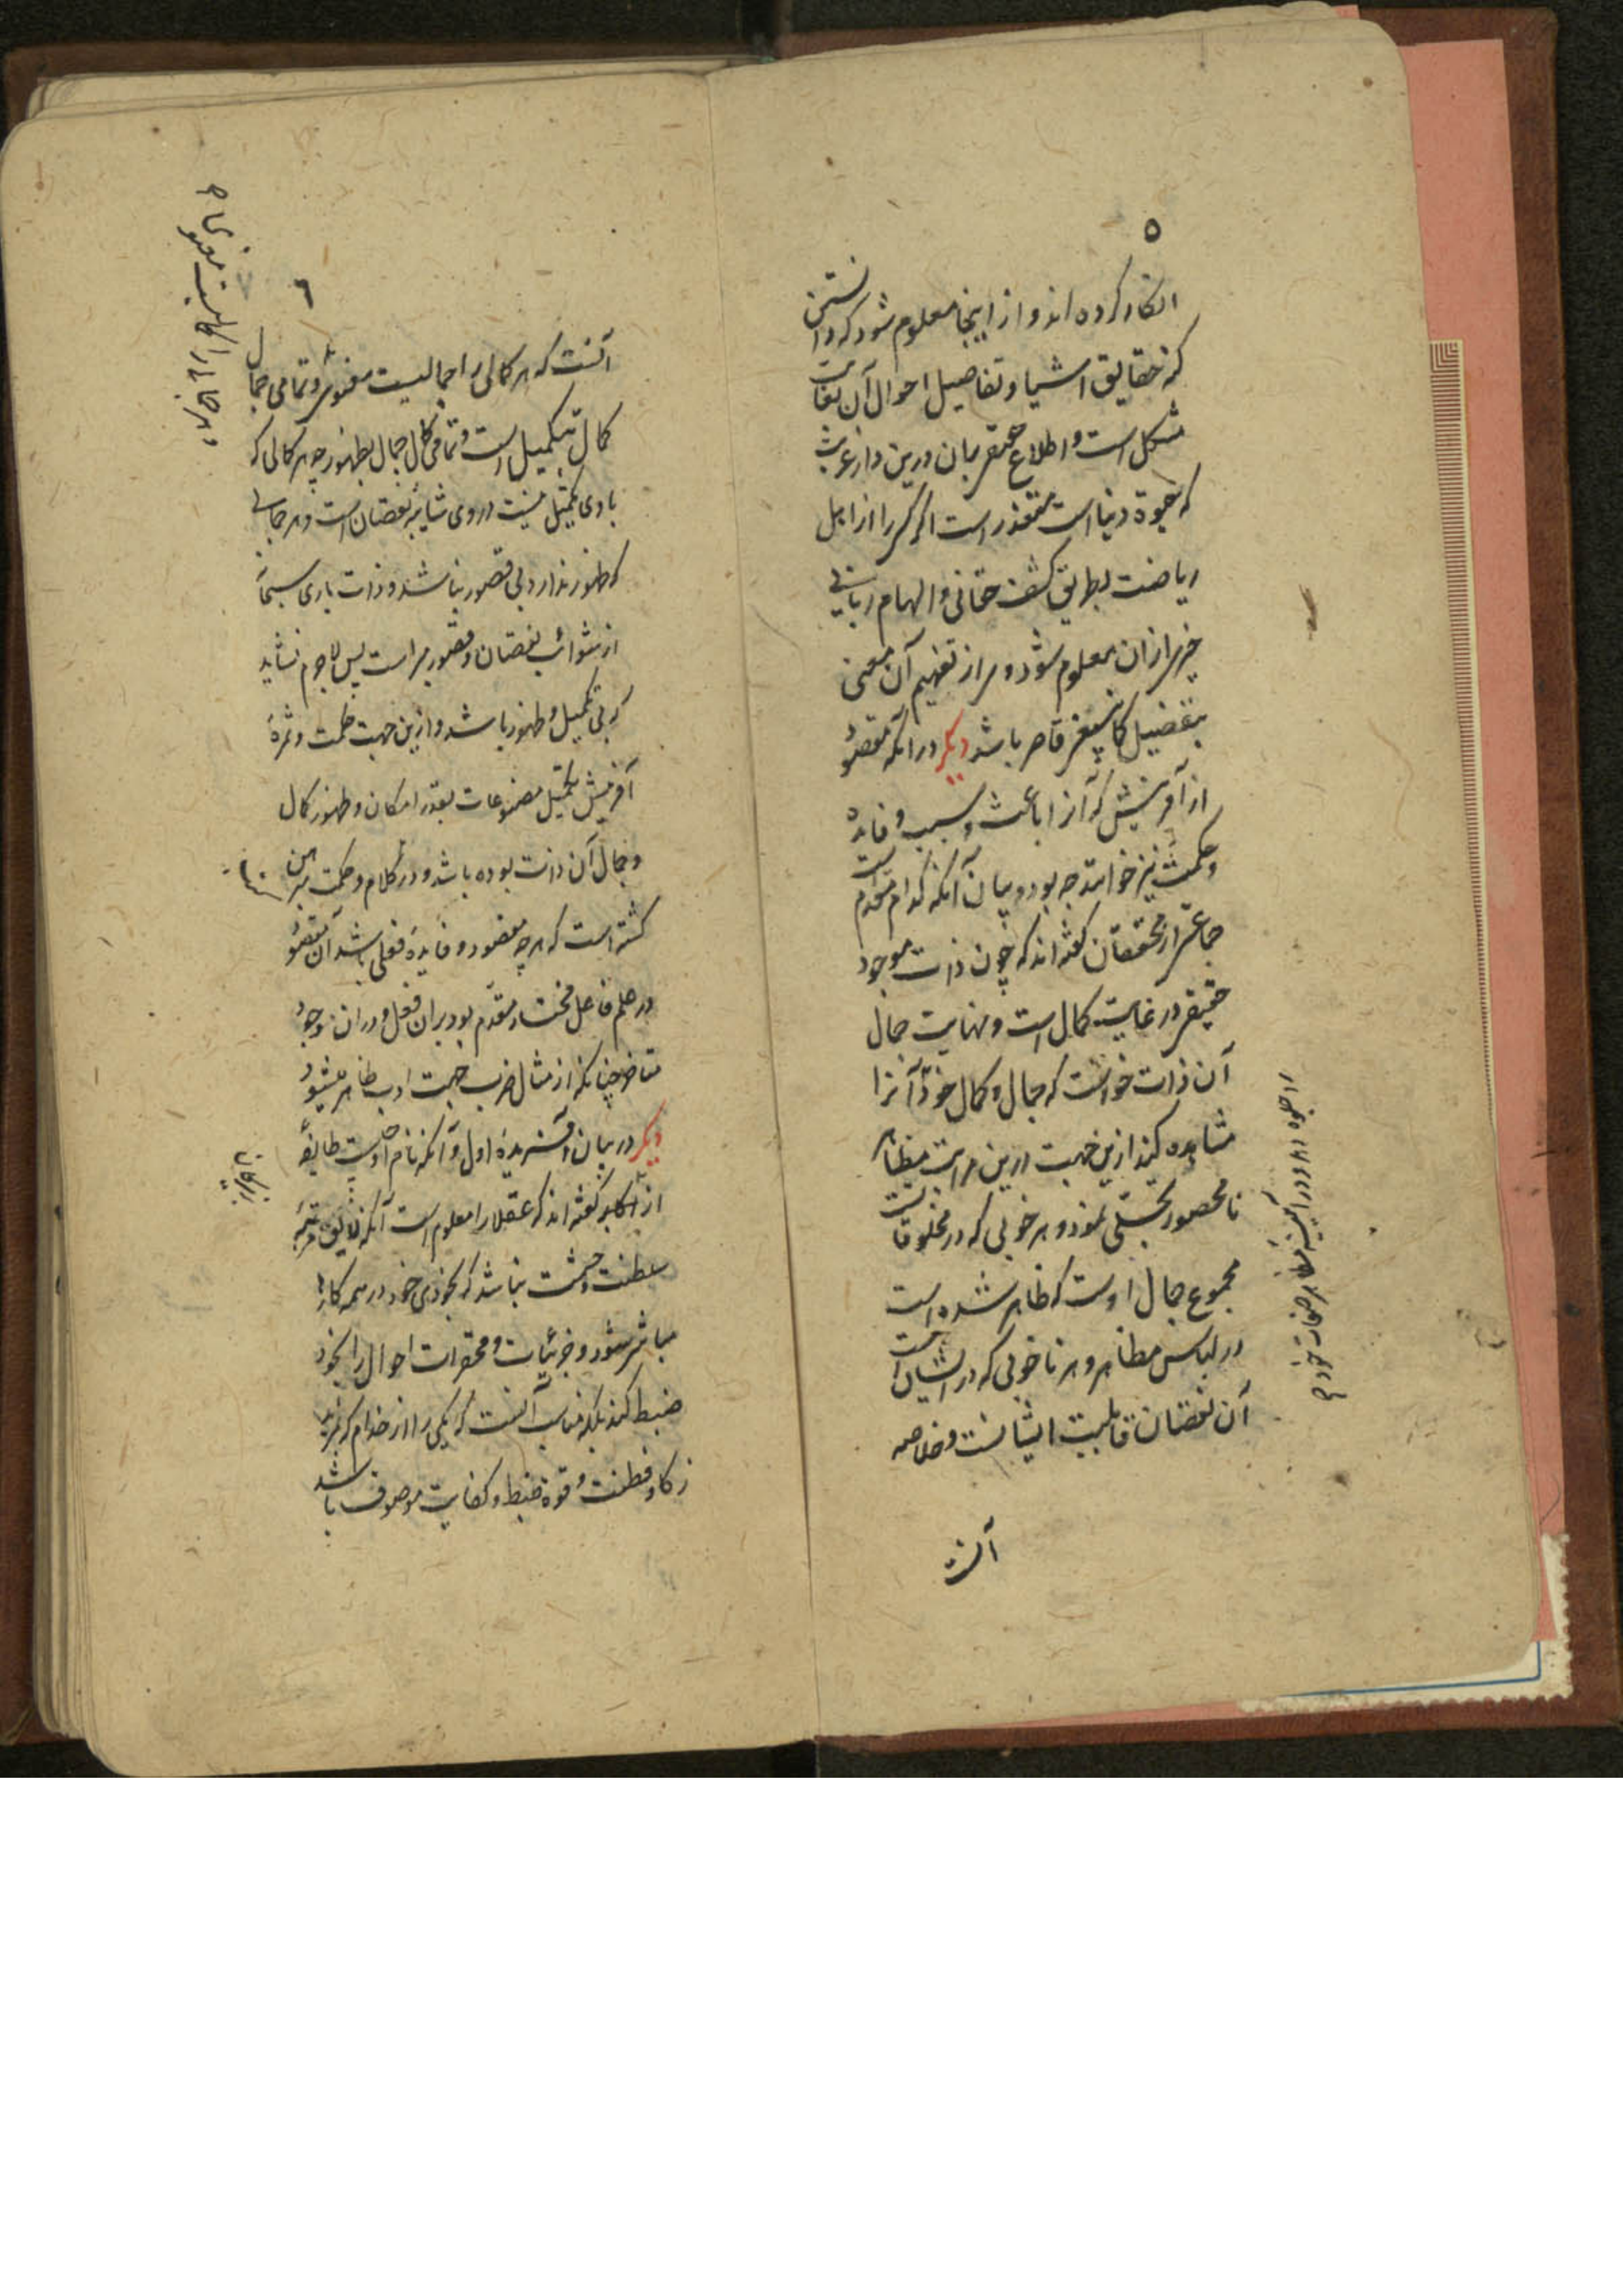 ٥
انکار کرده اند و از اینجا معلوم شود که دانستن
کنه حقایق اشیا و تفاصیل احوال آن بغایت
مشکل است و اطلاع حقیقی بان درین دار غربت
که حیوة دنیا است متعذر است اگر کسی را از اهل
ریاضت بطریق کشف حقانی و الهام ربانی
خبری ازان معلوم شود و مراز تفهیم آن معنی
بتفصیل کما ینبغی قاصر باشد دیگر در آنکه مقصود
از آفرینش که آنرا باعث و سبب و فایده
و حکمت نیز خوانند چه بود و بیان آنکه کدام مقدم است
جماعتی از محققان گفته اند که چون ذات موجود
حقیقی در غایت کمال است و نهایت جمال
آن ذات خواست که جمال و کمال خود آنرا
مشاهده کند ازین جهت درین مراتب مظاهر
نامحصور تجلی نمود و هر خوبی که در مخلوقاتست
مجموع جمال اوست که ظاهر شده است
در لباس مظاهر و هر ناخوبی که در ایشان است
آن نقصان قابلیت ایشانست و خلاصه
آنست
را جلوه دهد و در آیینه مظاهر صفات خود
٦
آنست که هر کمالی را جمالیست معنوی و تمامی جمال
کمال بتکمیل است و تمامی کمال جمال بظهور چه هر کمالی که
با وی تکمیل نیست در وی شایبه نقصان است و هر جمالی
که ظهور ندارد بی قصور نباشد و ذات باری سبحانه
از شوائب نقصان و قصور مبراست پس لاجرم نشاید
که بی تکمیل و ظهور باشد و ازین جهت حکمت و ثمرهٔ
آفرینش تکمیل مصنوعات بقدر امکان و ظهور کمال
و جمال آن ذات بوده باشد و در کلام و حکمت مبرهن
گشته است که هر چه مقصود و فایدهٔ فعلی باشد آن مقصود
در علم فاعل مختار مقدم بود بران فعل و دران وجود
متاخر چنانکه از مثال ضرب جهت ادب ظاهر میشود
دیگر در بیان آفریدهٔ اول و آنکه نام او چیست طایفهٔ
از اکابر گفته اند که عقلا را معلوم است آنکه لایق مرتبهٔ
سلطنت و حشمت نباشد که بخودی خود در همه کارها
مباشر شود و جزئیات و محقرات احوال را بخود
ضبط کند بلکه مناسب آنست که یکی را از خدام که بمزید
ذکا و فطنت و قوة ضبط و کفایت موصوف باشد
و هر جمالی را کمالیست معنوی